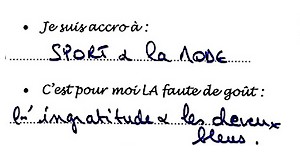 • Je suis accro à :
SPORT & la MODE
• C'est pour moi LA faute de goût :
L'ingratitude & les cheveux
bleus.